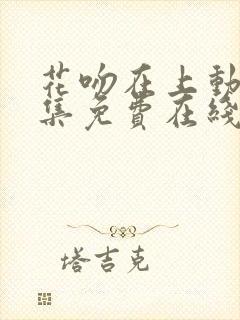 花吻在上動
集免費在綫
塔吉克